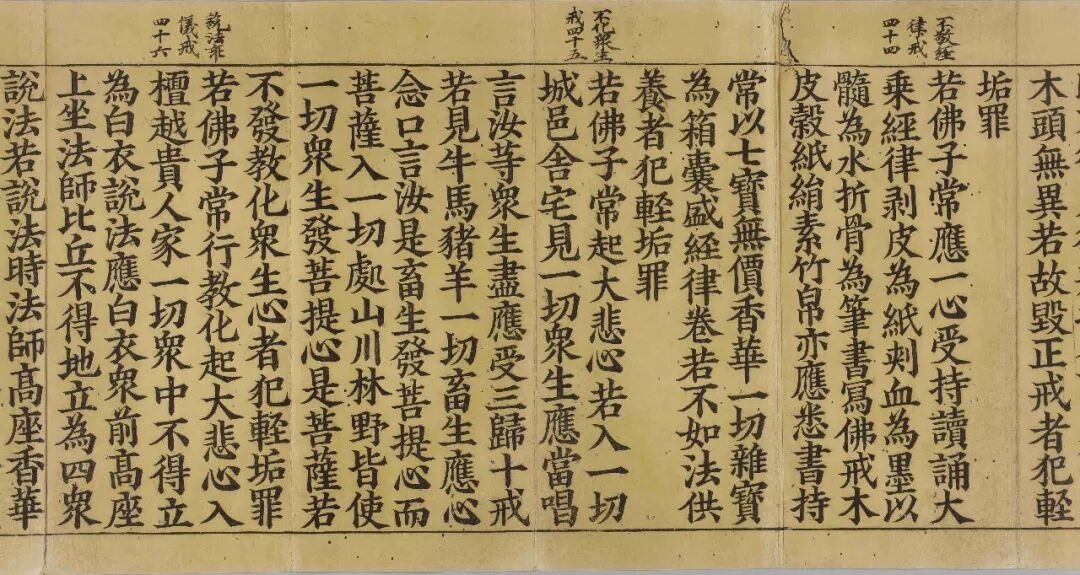 木頭無異若故毀正戒者犯輕
垢罪
不敬經
律戒
四十四
若佛子常應一心受持讀誦大
乗経律剥皮為紙刾血為墨以
髓為水折骨為筆書寫佛戒木
皮穀紙絹素竹帛亦應悉書持
常以七寶無價香華一切雜寶
為箱囊盛経律卷若不如法供
養者犯輕垢罪
不化衆生
戒四十五
若佛子常起大悲心若入一切
城邑舍宅見一切衆生應當唱
言汝等衆生盡應受三歸十戒
若見牛馬豬羊一切畜生應心
念口言汝是畜生發菩提心而
菩薩入一切處山川林野皆使
一切衆生發菩提心是菩薩若
不發教化衆生心者犯輕垢罪
說法乖
儀戒
四十六
若佛子常行教化起大悲心入
檀越貴人家一切衆中不得立
為白衣說法應白衣衆前髙座
上坐法師比丘不得地立為四衆
說法若說法時法師髙座香華